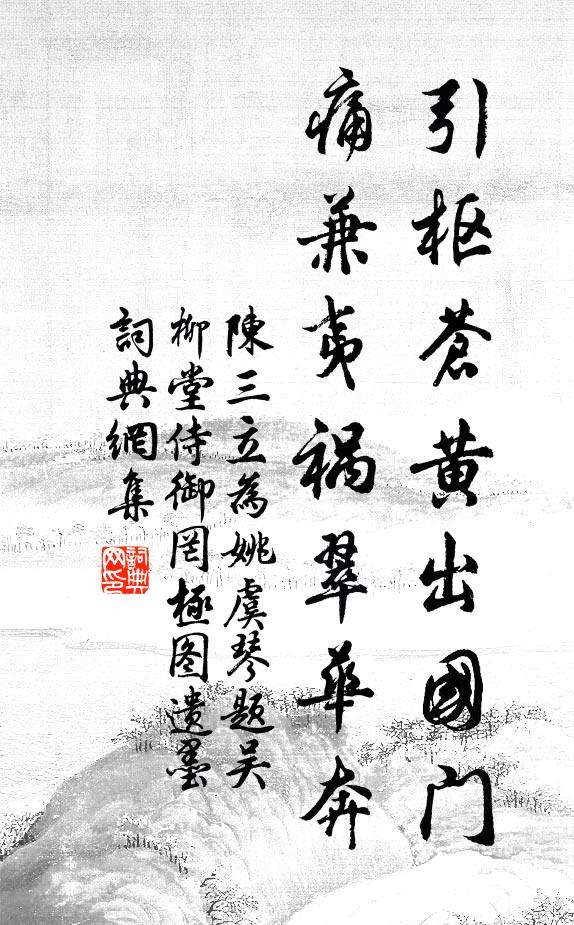 引枢蒼黄出國门
痛兼夷禍翠華奔
陳三立為姚虞琴题吴
柳堂侍御罔極图遺墨
詞典網集
詞典网印